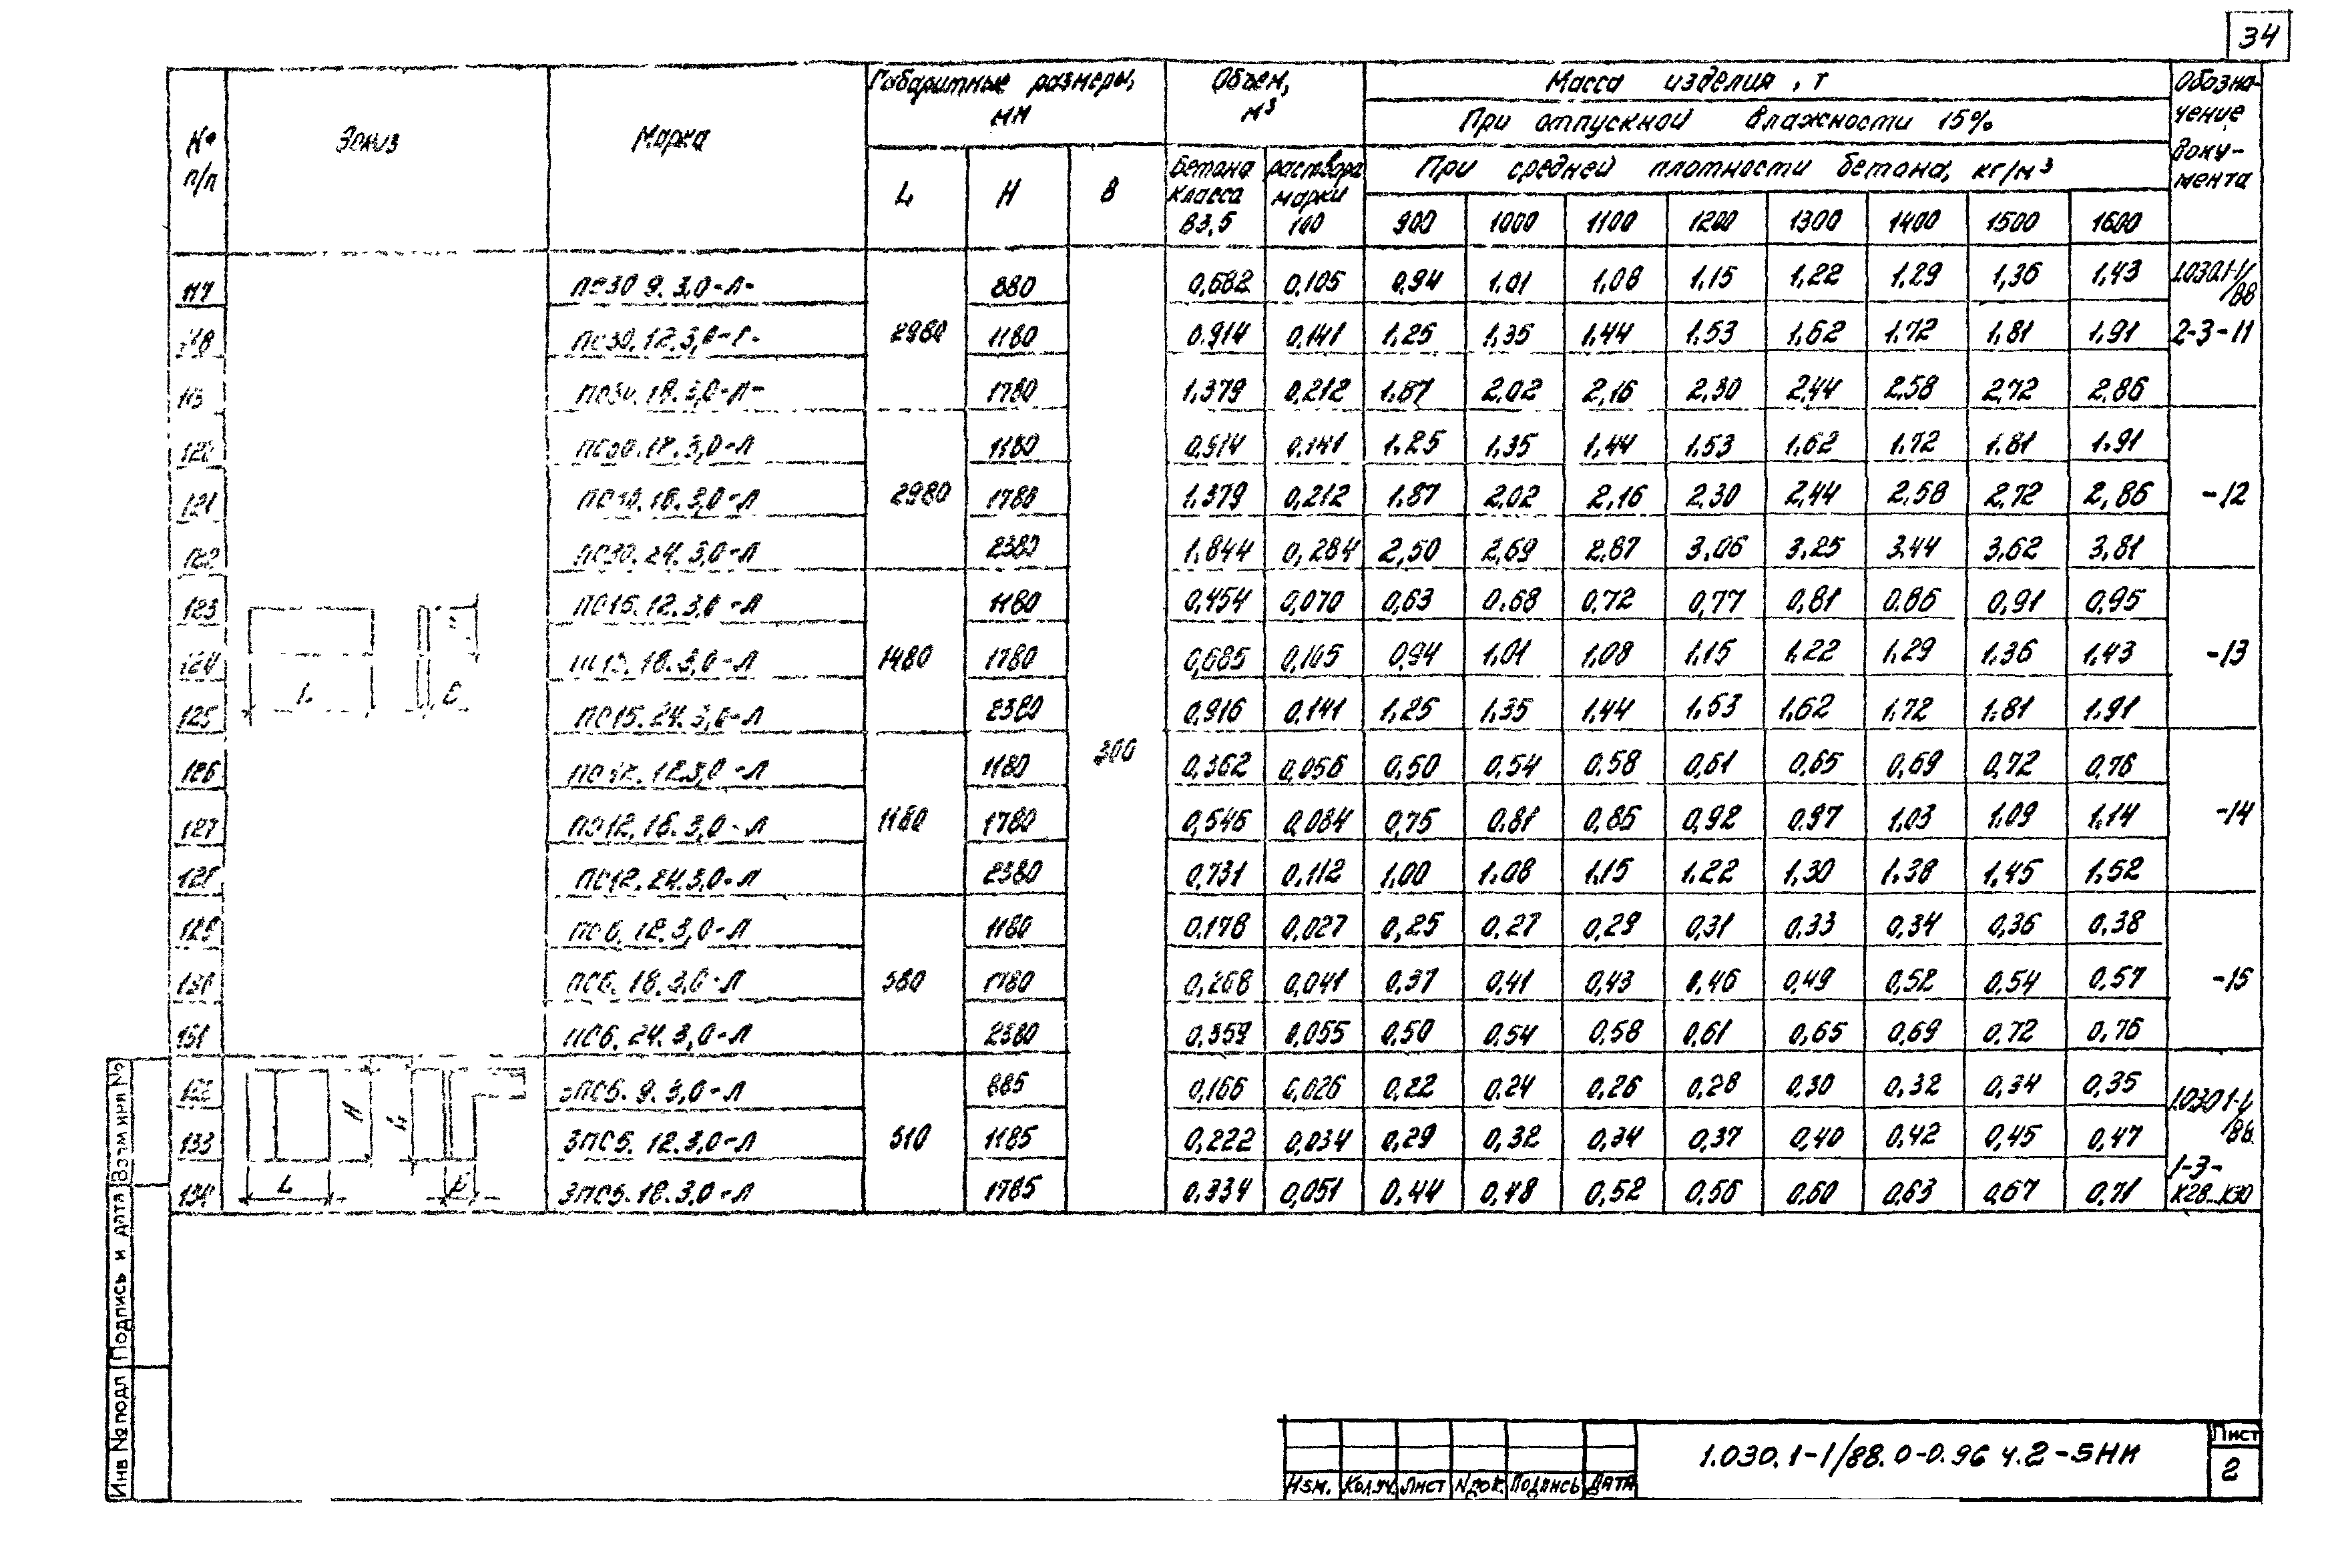 34
№ п/п Эскиз Марка Габаритные размеры, мм Объем, м³ Масса изделия, т Обозначение документа
При отпускной влажности 15%
L H B Бетона класса В3,5 раствора марки 100 При средней плотности бетона, кг/м³
900 1000 1100 1200 1300 1400 1500 1600
117 ПС30.9.3,0-Л- 880 0,682 0,105 0,94 1,01 1,08 1,15 1,22 1,29 1,36 1,43 1.030.1-1/88
118 ПС30.12.3,0-Л- 2980 1180 0,914 0,141 1,25 1,35 1,44 1,53 1,62 1,72 1,81 1,91 2-3-11
119 ПС30.18.3,0-Л- 1780 1,379 0,212 1,87 2,02 2,16 2,30 2,44 2,58 2,72 2,86
120 ПС30.12.3,0-Л 1180 0,914 0,141 1,25 1,35 1,44 1,53 1,62 1,72 1,81 1,91
121 ПС30.18.3,0-Л 2980 1780 1,379 0,212 1,87 2,02 2,16 2,30 2,44 2,58 2,72 2,86 -12
122 ПС30.24.3,0-Л 2380 1,844 0,284 2,50 2,69 2,87 3,06 3,25 3,44 3,62 3,81
123 ПС15.12.3,0-Л 1180 0,454 0,070 0,63 0,68 0,72 0,77 0,81 0,86 0,91 0,95
124 ПС15.18.3,0-Л 1480 1780 0,685 0,105 0,94 1,01 1,08 1,15 1,22 1,29 1,36 1,43 -13
L
125 ПС15.24.3,0-Л 2380 0,916 0,141 1,25 1,35 1,44 1,53 1,62 1,72 1,81 1,91
300
126 ПС12.12.3,0-Л 1180 0,362 0,056 0,50 0,54 0,58 0,61 0,65 0,69 0,72 0,76
127 ПС12.18.3,0-Л 1180 1780 0,546 0,084 0,75 0,81 0,86 0,92 0,97 1,03 1,09 1,14 -14
128 ПС12.24.3,0-Л 2380 0,731 0,112 1,00 1,08 1,15 1,22 1,30 1,38 1,45 1,52
129 ПС6.12.3,0-Л 1180 0,178 0,027 0,25 0,27 0,29 0,31 0,33 0,34 0,36 0,38
130 ПС6.18.3,0-Л 580 1780 0,268 0,041 0,37 0,41 0,43 0,46 0,49 0,52 0,54 0,57 -15
131 ПС6.24.3,0-Л 2380 0,359 0,055 0,50 0,54 0,58 0,61 0,65 0,69 0,72 0,76
132 3ПС5.9.3,0-Л 885 0,166 0,026 0,22 0,24 0,26 0,28 0,30 0,32 0,34 0,35 1.030.1-1/88.
H
133 3ПС5.12.3,0-Л 510 1185 0,222 0,034 0,29 0,32 0,34 0,37 0,40 0,42 0,45 0,47 1-3-
L
134 3ПС5.18.3,0-Л 1785 0,334 0,051 0,44 0,48 0,52 0,56 0,60 0,63 0,67 0,71 К28...К30
Инв № подл Подпись и дата Взам инв №
1.030.1-1/88.0-0.96 ч.2-5НИ
Лист
2
Изм. Кол.уч. Лист Nдок. Подпись Дата